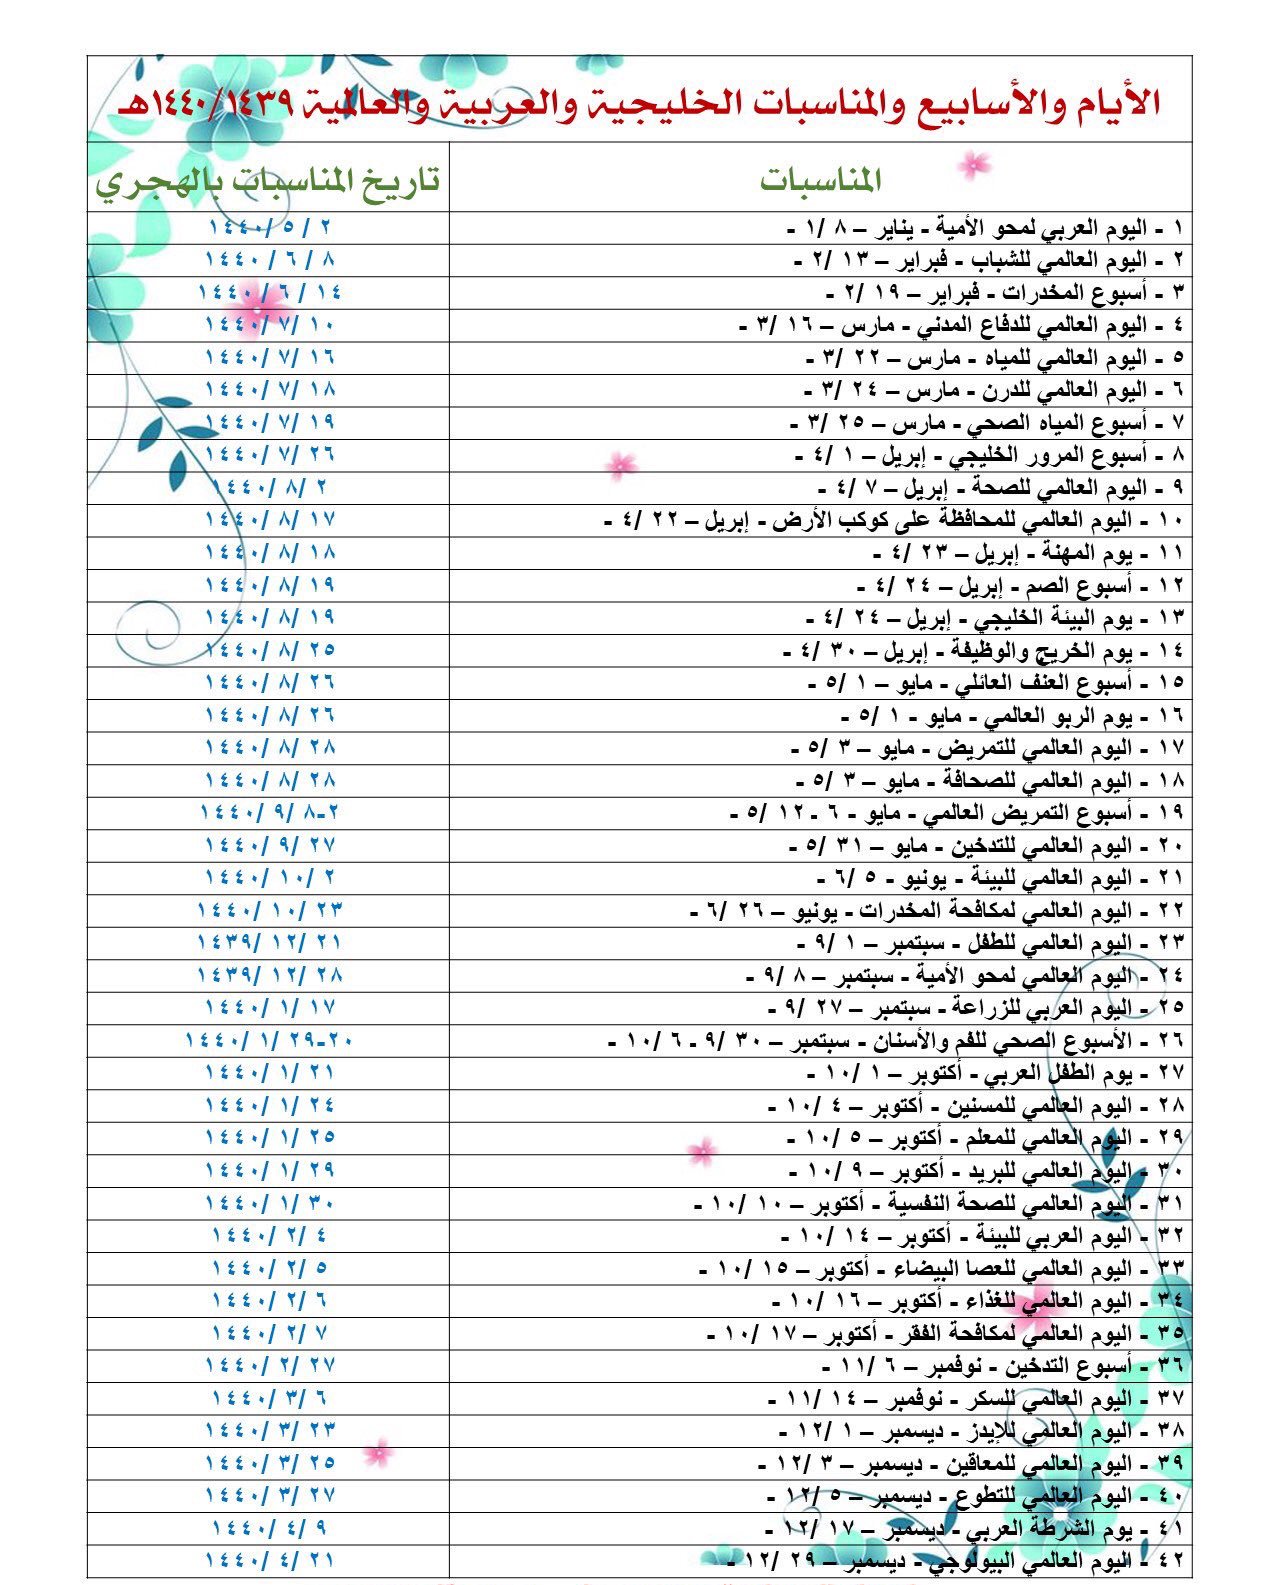 الأيام والأسابيع والمناسبات الخليجية والعربية والعالمية ١٤٤٠/١٤٣٩هـ
المناسبات تاريخ المناسبات بالهجري
١ - اليوم العربي لمحو الأمية - يناير – ٨ /١ - ٢ / ٥ /١٤٤٠
٢ - اليوم العالمي للشباب - فبراير – ١٣ /٢ - ٨ / ٦ / ١٤٤٠
٣ - أسبوع المخدرات - فبراير – ١٩ /٢ - ١٤ / ٦ / ١٤٤٠
٤ - اليوم العالمي للدفاع المدني - مارس – ١٦ /٣ - ١٠ /٧ /١٤٤٠
٥ - اليوم العالمي للمياه - مارس – ٢٢ /٣ - ١٦ /٧ /١٤٤٠
٦ - اليوم العالمي للدرن - مارس – ٢٤ /٣ - ١٨ /٧ /١٤٤٠
٧ - أسبوع المياه الصحي - مارس – ٢٥ /٣ - ١٩ /٧ /١٤٤٠
٨ - أسبوع المرور الخليجي - إبريل – ١ /٤ - ٢٦ /٧ /١٤٤٠
٩ - اليوم العالمي للصحة - إبريل – ٧ /٤ - ٢ /٨ /١٤٤٠
١٠ - اليوم العالمي للمحافظة على كوكب الأرض - إبريل – ٢٢ /٤ - ١٧ /٨ /١٤٤٠
١١ - يوم المهنة - إبريل – ٢٣ /٤ - ١٨ /٨ /١٤٤٠
١٢ - أسبوع الصم - إبريل – ٢٤ /٤ - ١٩ /٨ /١٤٤٠
١٣ - يوم البيئة الخليجي - إبريل – ٢٤ /٤ - ١٩ /٨ /١٤٤٠
١٤ - يوم الخريج والوظيفة - إبريل – ٣٠ /٤ - ٢٥ /٨ /١٤٤٠
١٥ - أسبوع العنف العائلي - مايو – ١ /٥ - ٢٦ /٨ /١٤٤٠
١٦ - يوم الربو العالمي - مايو - ١ /٥ - ٢٦ /٨ /١٤٤٠
١٧ - اليوم العالمي للتمريض - مايو – ٣ /٥ - ٢٨ /٨ /١٤٤٠
١٨ - اليوم العالمي للصحافة - مايو – ٣ /٥ - ٢٨ /٨ /١٤٤٠
١٩ - أسبوع التمريض العالمي - مايو - ٦ - ١٢ /٥ - ٢-٨ /٩ /١٤٤٠
٢٠ - اليوم العالمي للتدخين - مايو – ٣١ /٥ - ٢٧ /٩ /١٤٤٠
٢١ - اليوم العالمي للبيئة - يونيو - ٥ /٦ - ٢ /١٠ /١٤٤٠
٢٢ - اليوم العالمي لمكافحة المخدرات - يونيو – ٢٦ /٦ - ٢٣ /١٠ /١٤٤٠
٢٣ - اليوم العالمي للطفل - سبتمبر – ١ /٩ - ٢١ /١٢ /١٤٣٩
٢٤ - اليوم العالمي لمحو الأمية - سبتمبر – ٨ /٩ - ٢٨ /١٢ /١٤٣٩
٢٥ - اليوم العربي للزراعة - سبتمبر – ٢٧ /٩ - ١٧ /١ /١٤٤٠
٢٦ - الأسبوع الصحي للفم والأسنان - سبتمبر – ٣٠ /٩ - ٦ /١٠ - ٢٠-٢٩ /١ /١٤٤٠
٢٧ - يوم الطفل العربي - أكتوبر – ١ /١٠ - ٢١ /١ /١٤٤٠
٢٨ - اليوم العالمي للمسنين - أكتوبر – ٤ /١٠ - ٢٤ /١ /١٤٤٠
٢٩ - اليوم العالمي للمعلم - أكتوبر – ٥ /١٠ - ٢٥ /١ /١٤٤٠
٣٠ - اليوم العالمي للبريد - أكتوبر – ٩ /١٠ - ٢٩ /١ /١٤٤٠
٣١ - اليوم العالمي للصحة النفسية - أكتوبر – ١٠ /١٠ - ٣٠ /١ /١٤٤٠
٣٢ - اليوم العربي للبيئة - أكتوبر – ١٤ /١٠ - ٤ /٢ /١٤٤٠
٣٣ - اليوم العالمي للعصا البيضاء - أكتوبر – ١٥ /١٠ - ٥ /٢ /١٤٤٠
٣٤ - اليوم العالمي للغذاء - أكتوبر – ١٦ /١٠ - ٦ /٢ /١٤٤٠
٣٥ - اليوم العالمي لمكافحة الفقر - أكتوبر – ١٧ /١٠ - ٧ /٢ /١٤٤٠
٣٦ - أسبوع التدخين - نوفمبر – ٦ /١١ - ٢٧ /٢ /١٤٤٠
٣٧ - اليوم العالمي للسكر - نوفمبر – ١٤ /١١ - ٦ /٣ /١٤٤٠
٣٨ - اليوم العالمي للإيدز - ديسمبر – ١ /١٢ - ٢٣ /٣ /١٤٤٠
٣٩ - اليوم العالمي للمعاقين - ديسمبر – ٣ /١٢ - ٢٥ /٣ /١٤٤٠
٤٠ - اليوم العالمي للتطوع - ديسمبر – ٥ /١٢ - ٢٧ /٣ /١٤٤٠
٤١ - يوم الشرطة العربي - ديسمبر – ١٧ /١٢ - ٩ /٤ /١٤٤٠
٤٢ - اليوم العالمي البيولوجي - ديسمبر – ٢٩ /١٢ - ٢١ /٤ /١٤٤٠